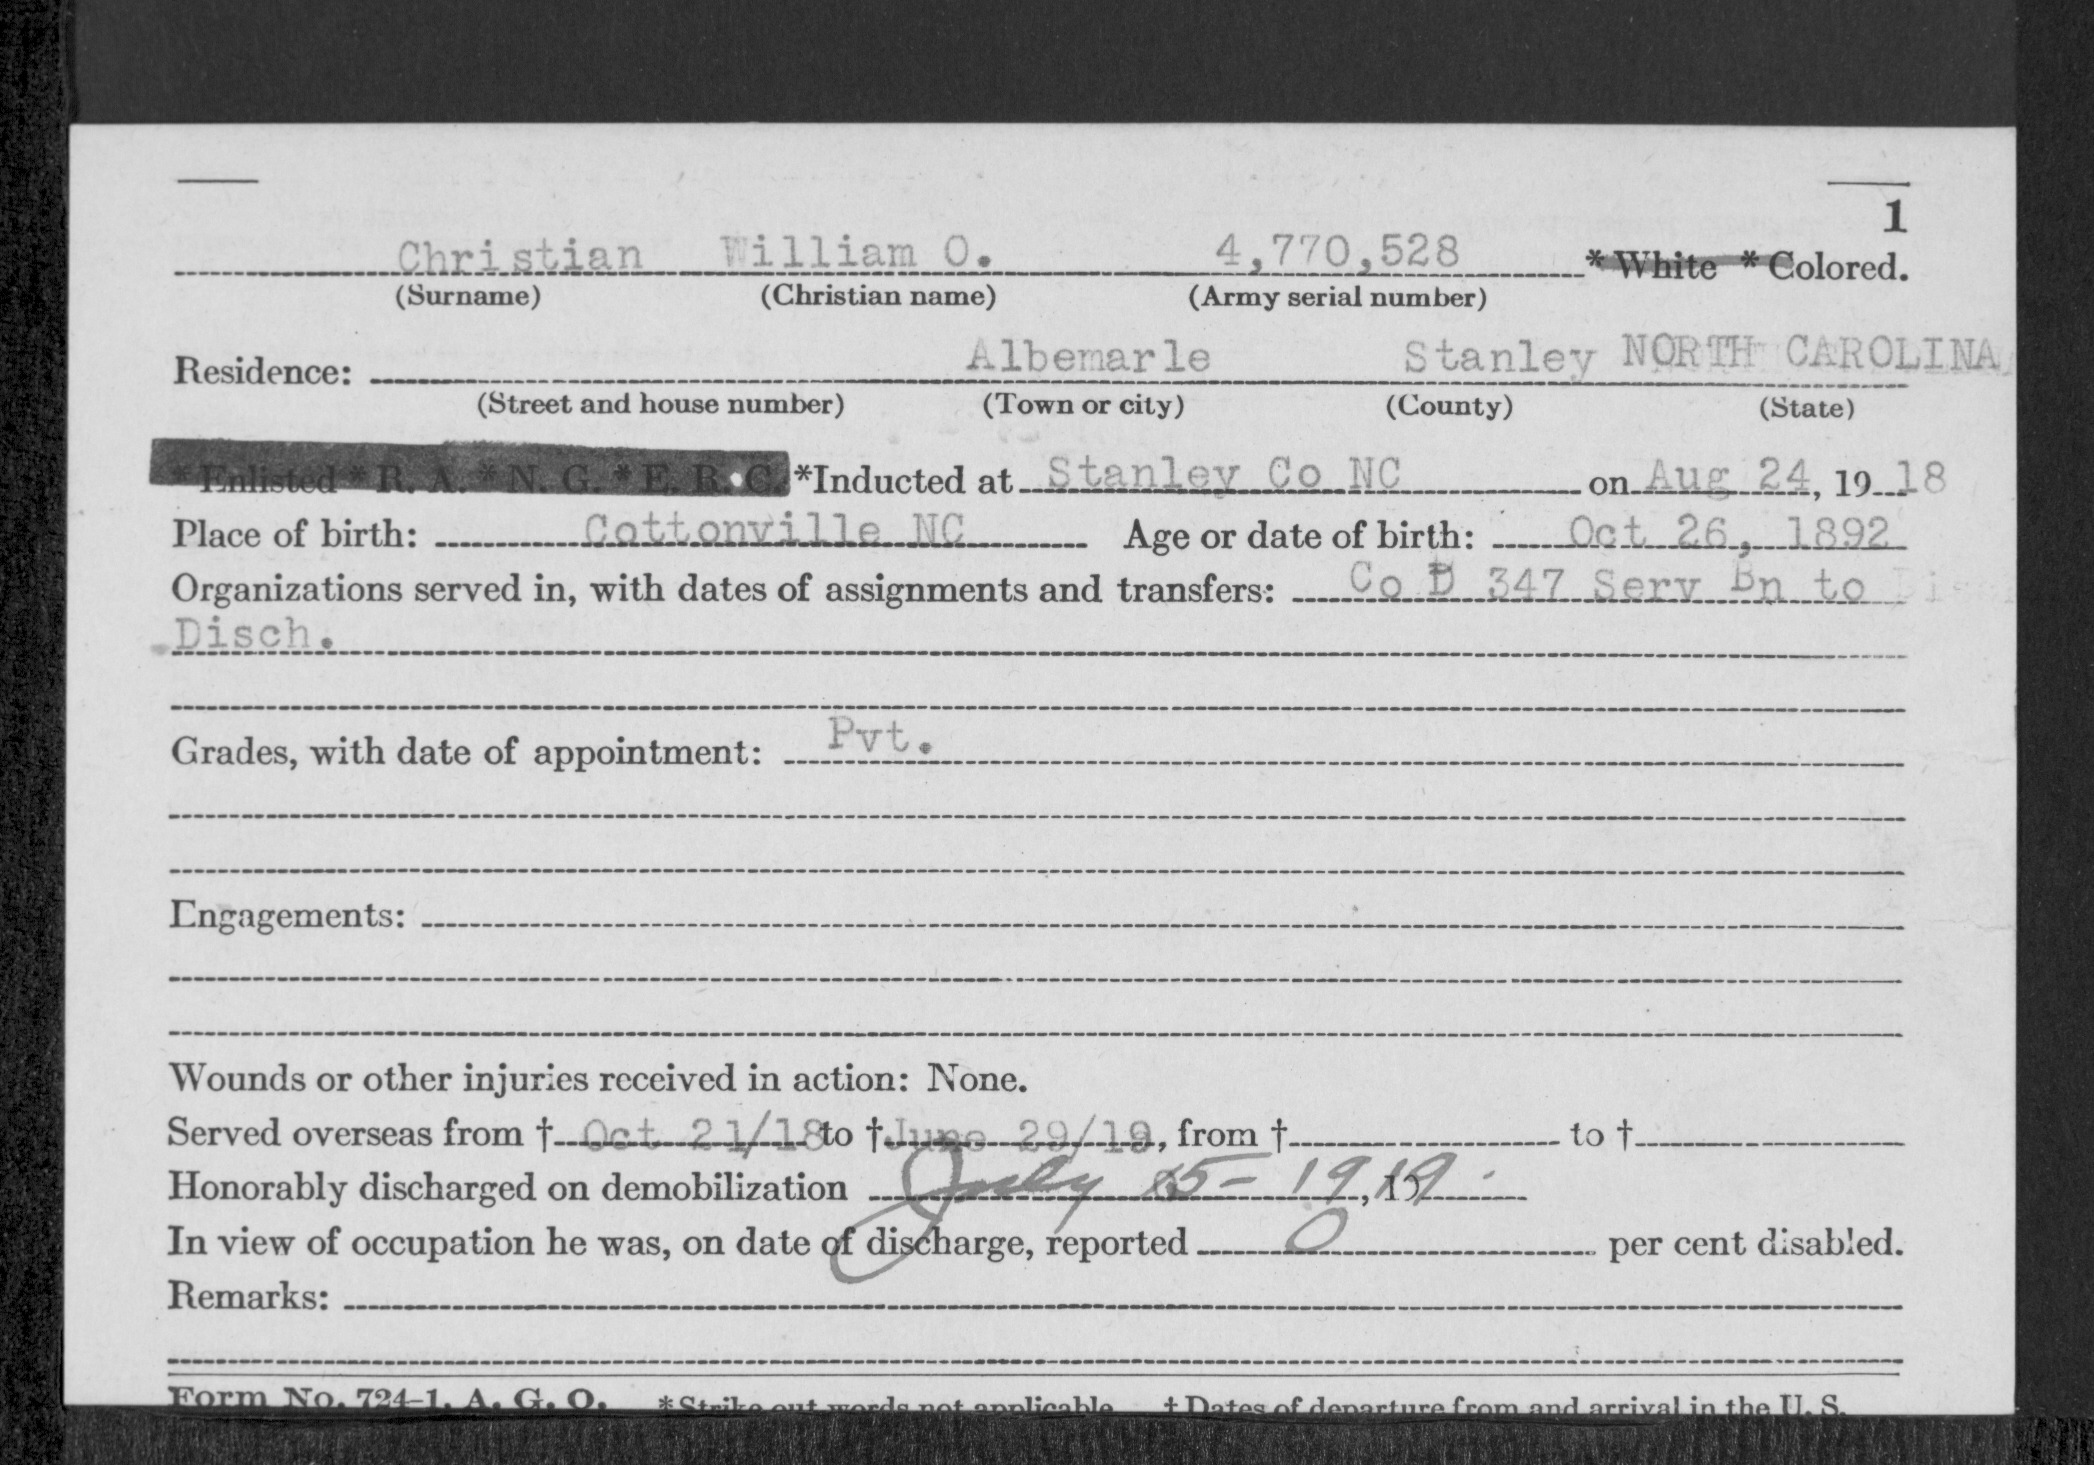 1
Christian William O. 4,770,528 * White * Colored.
(Surname) (Christian name) (Army serial number)
Albemarle Stanley NORTH CAROLINA
Residence:
(Street and house number) (Town or city) (County) (State)
* Enlisted * R. A. * N. G. * E. R. C. *Inducted at Stanley Co NC on Aug 24, 19 18
Place of birth: Cottonville NC Age or date of birth: Oct 26, 1892
Organizations served in, with dates of assignments and transfers: Co D 347 Serv Bn to
Disch.
Grades, with date of appointment: Pvt.
Engagements:
Wounds or other injuries received in action: None.
Served overseas from † Oct 21/18 to † June 29/19, from † to †
Honorably discharged on demobilization July 5- 19, 1919
In view of occupation he was, on date of discharge, reported 0 per cent disabled.
Remarks:
Form No. 724-1, A. G. O. *Strike out words not applicable. † Dates of departure from and arrival in the U. S.